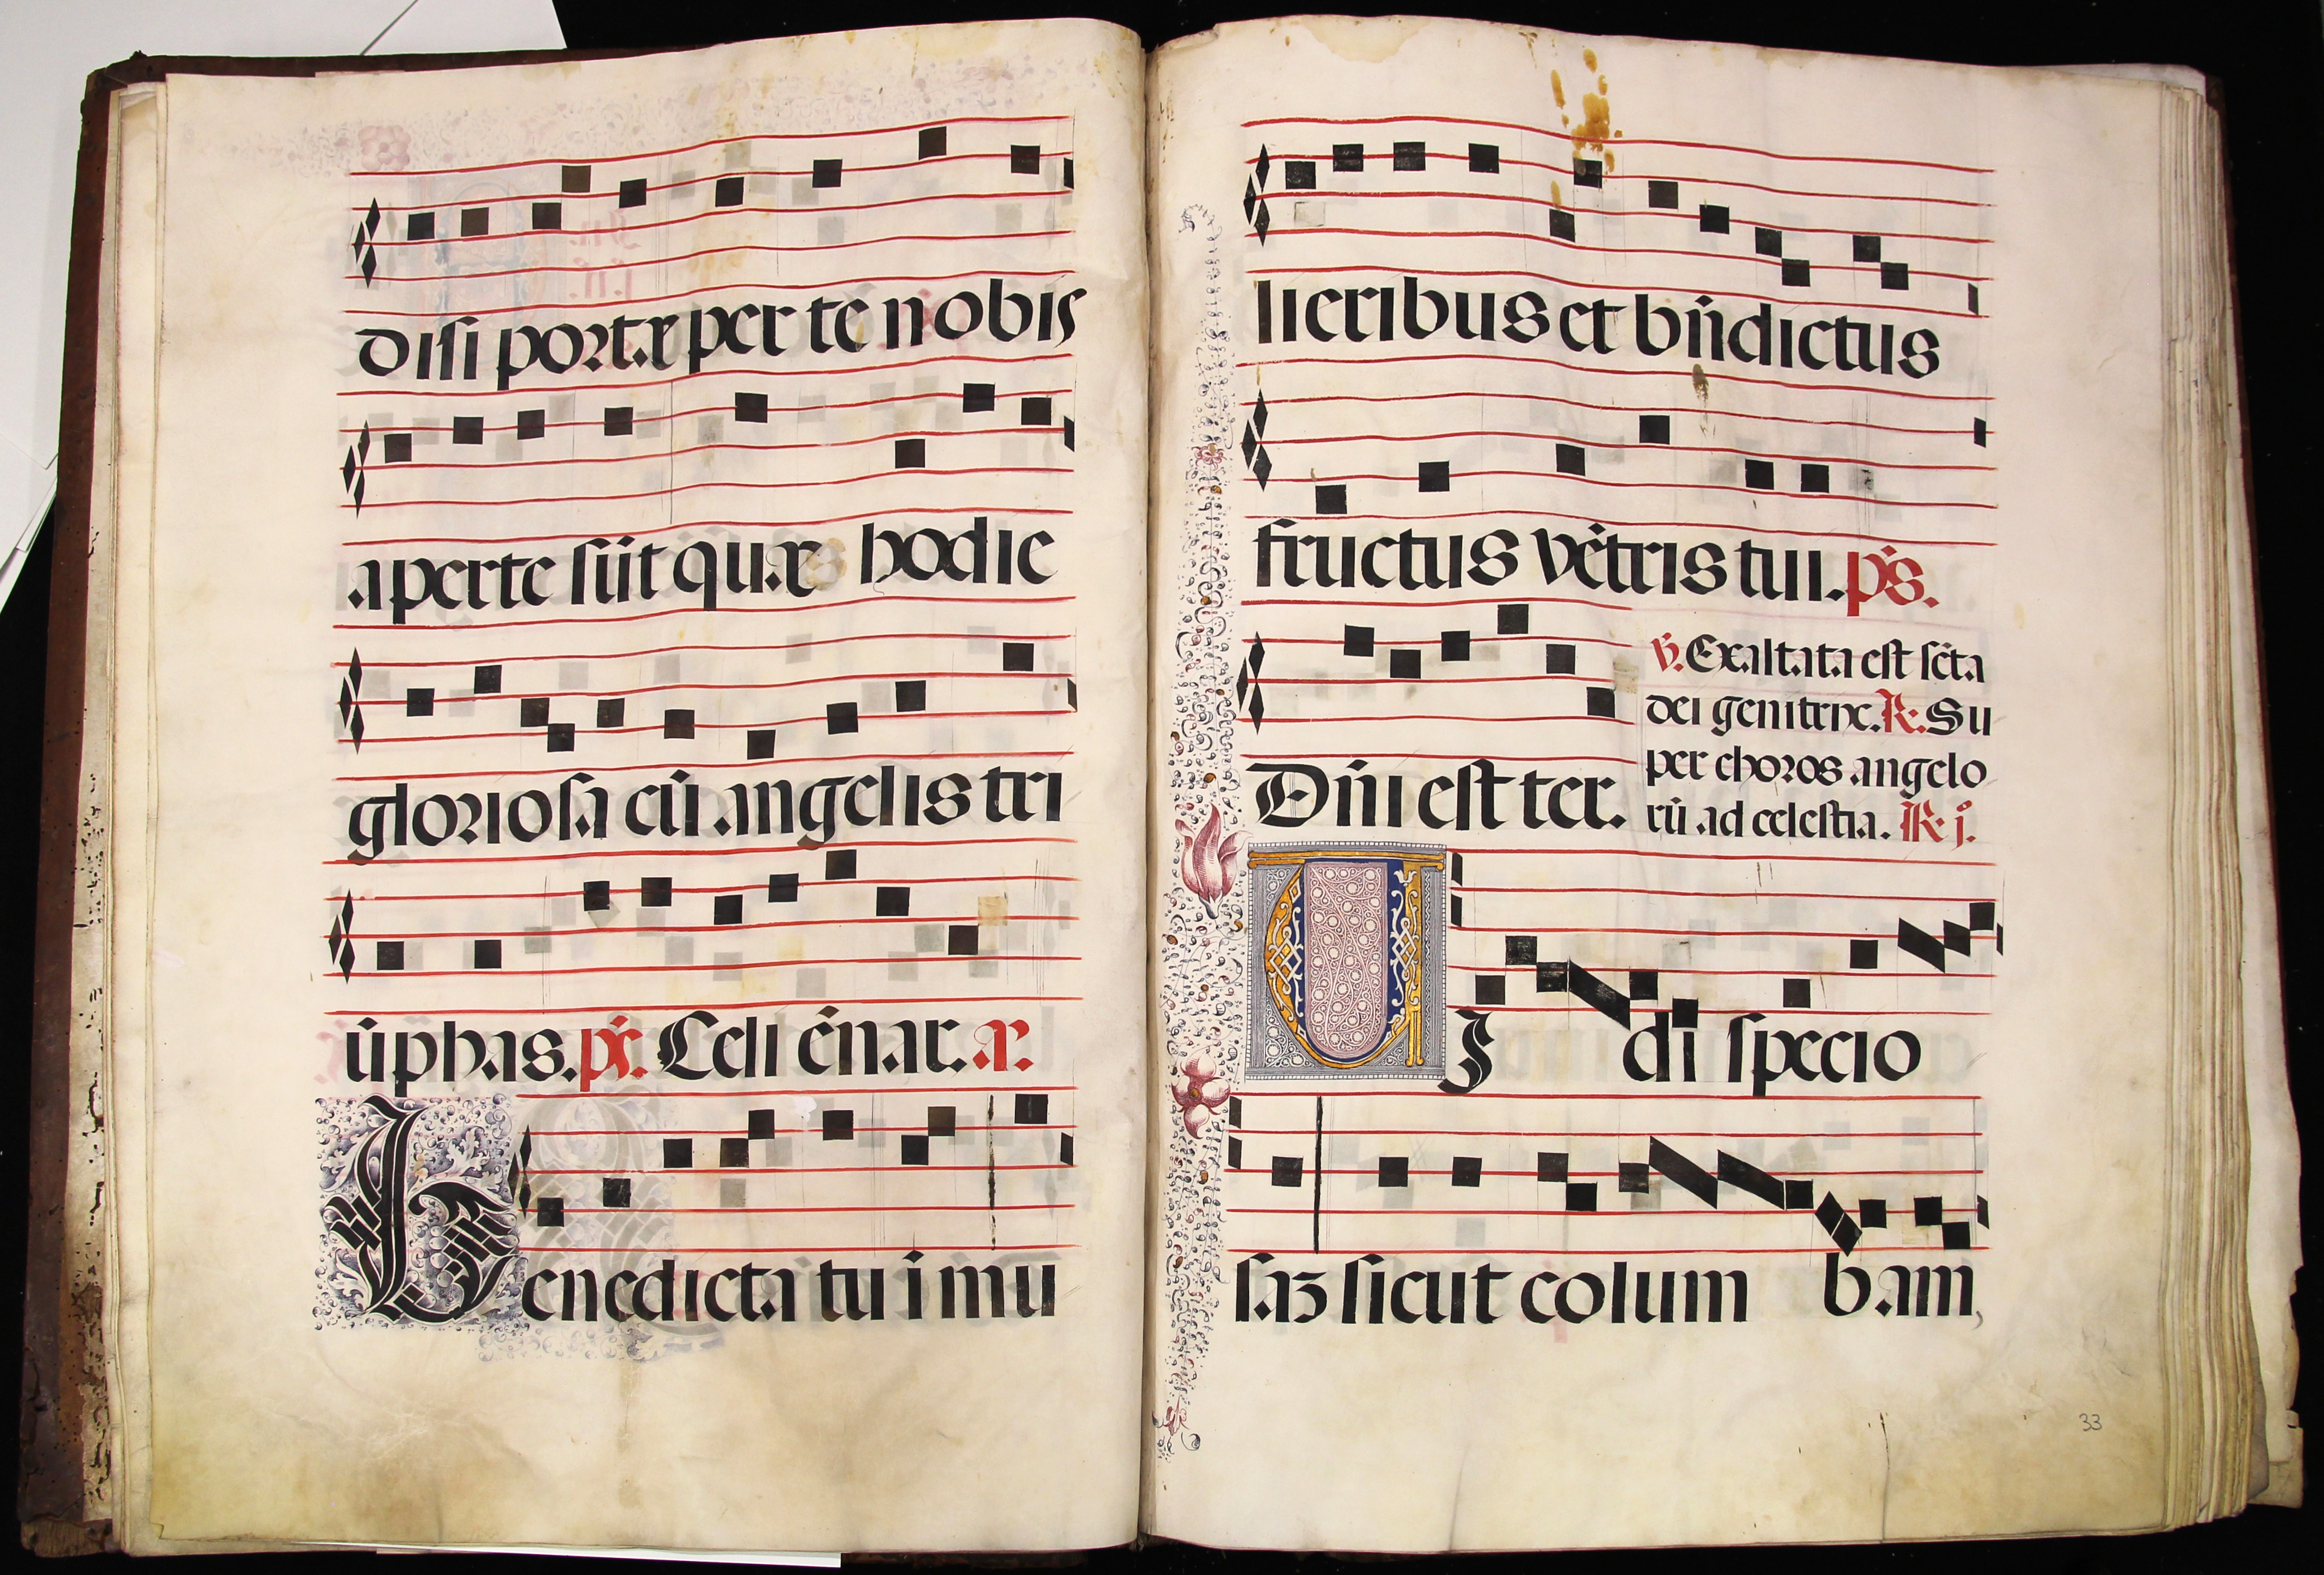 disi portæ per te nobis
aperte sūt quæ hodie
gloriosa cū angelis tri
ūphas. ps. Celi enar. a.
Benedicta tu i mu
lieribus et bn̄dictus
fructus vētris tui. ps.
Dn̄i est ter.
v. Exaltata est scta
dei genitrix. R. Su
per choros angelo
rū ad celestia. R j.
VJ di specio
saz sicut colum bam,
33